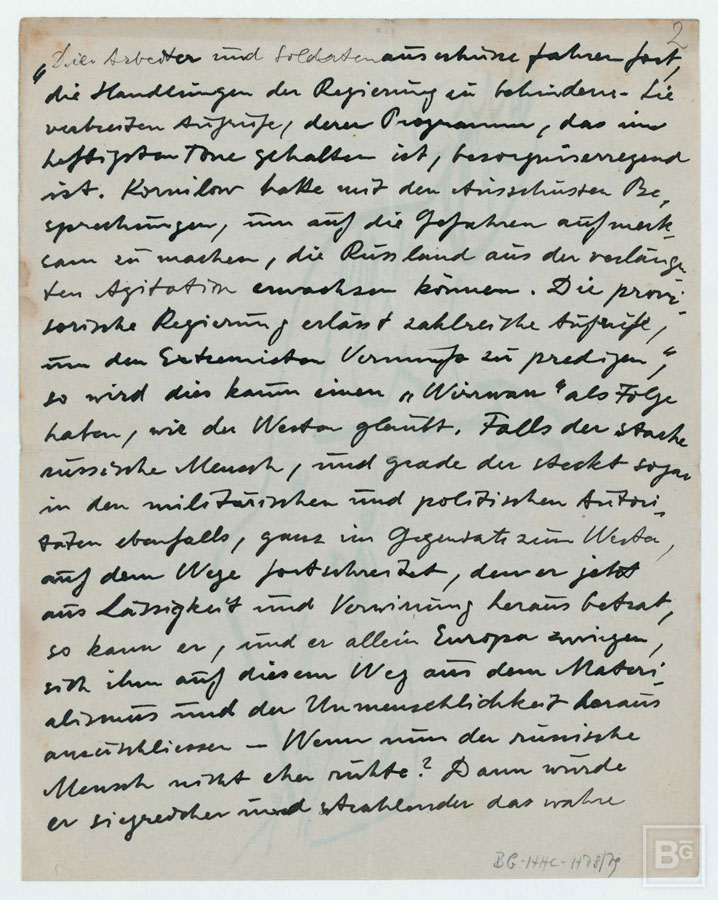 2
„Die Arbeiter und Soldatenausschüsse fahren fort,
die Handlungen der Regierung zu behindern – Sie
verbreiten Aufrufe, deren Programm, das im
heftigsten Tone gehalten ist, besorgniserregend
ist. Kornilow hatte mit den Ausschüssen Be-
sprechungen, um auf die Gefahren aufmerk-
sam zu machen, die Russland aus der verlänger-
ten Agitation erwachsen können. Die provi-
sorische Regierung erlässt zahlreiche Aufrufe,
um den Extremisten Vernunft zu predigen“,
so wird dies kaum einen „Wirrwarr“ als Folge
haben, wie der Westen glaubt. Falls der starke
russische Mensch, und grade der steckt sogar
in den militärischen und politischen Autori-
täten ebenfalls, ganz im Gegensatz zum Westen,
auf dem Wege fortschreitet, den er jetzt
aus Lässigkeit und Verwirrung heraus betrat,
so kann er, und er allein Europa zwingen,
sich ihm auf diesem Weg aus dem Materi-
alismus und der Unmenschlichkeit heraus
anzuschliessen – Wenn nun der russische
Mensch nicht eher ruhte? Dann würde
er siegreicher und strahlender das wahre
BG-HHC-H78/79
BG